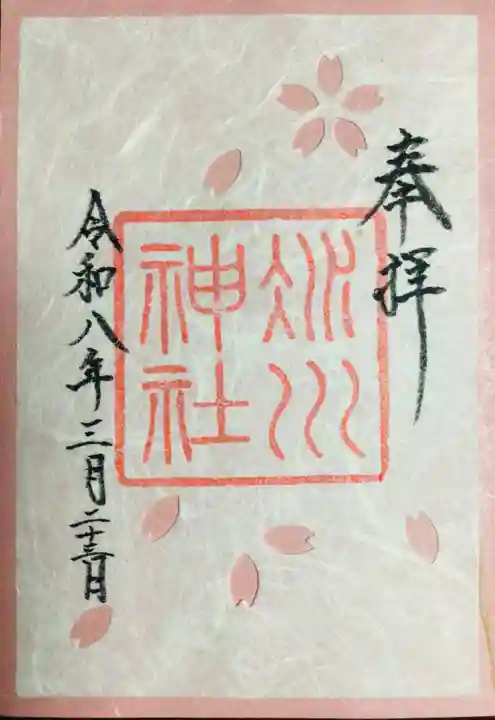 奉拝
氷川
神社
令和八年三月二十三日